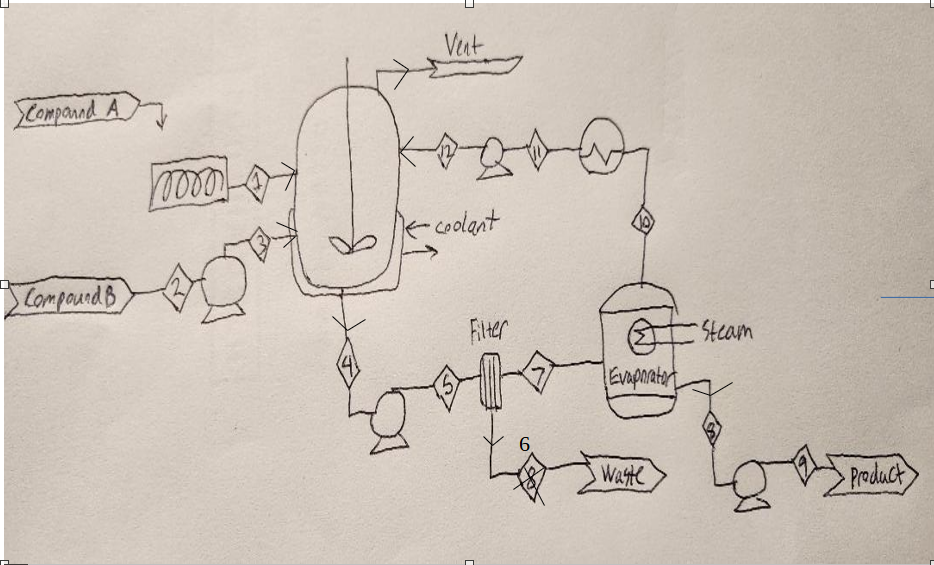 Vent
Compound A
12
11
1
10
coolant
3
2
Compound B
Filter
Steam
4
5
7
Evaporator
6
8
8
9
Waste
Product